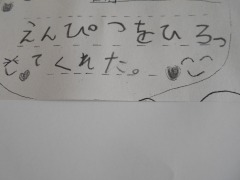 えんぴつをひろっ
てくれた。